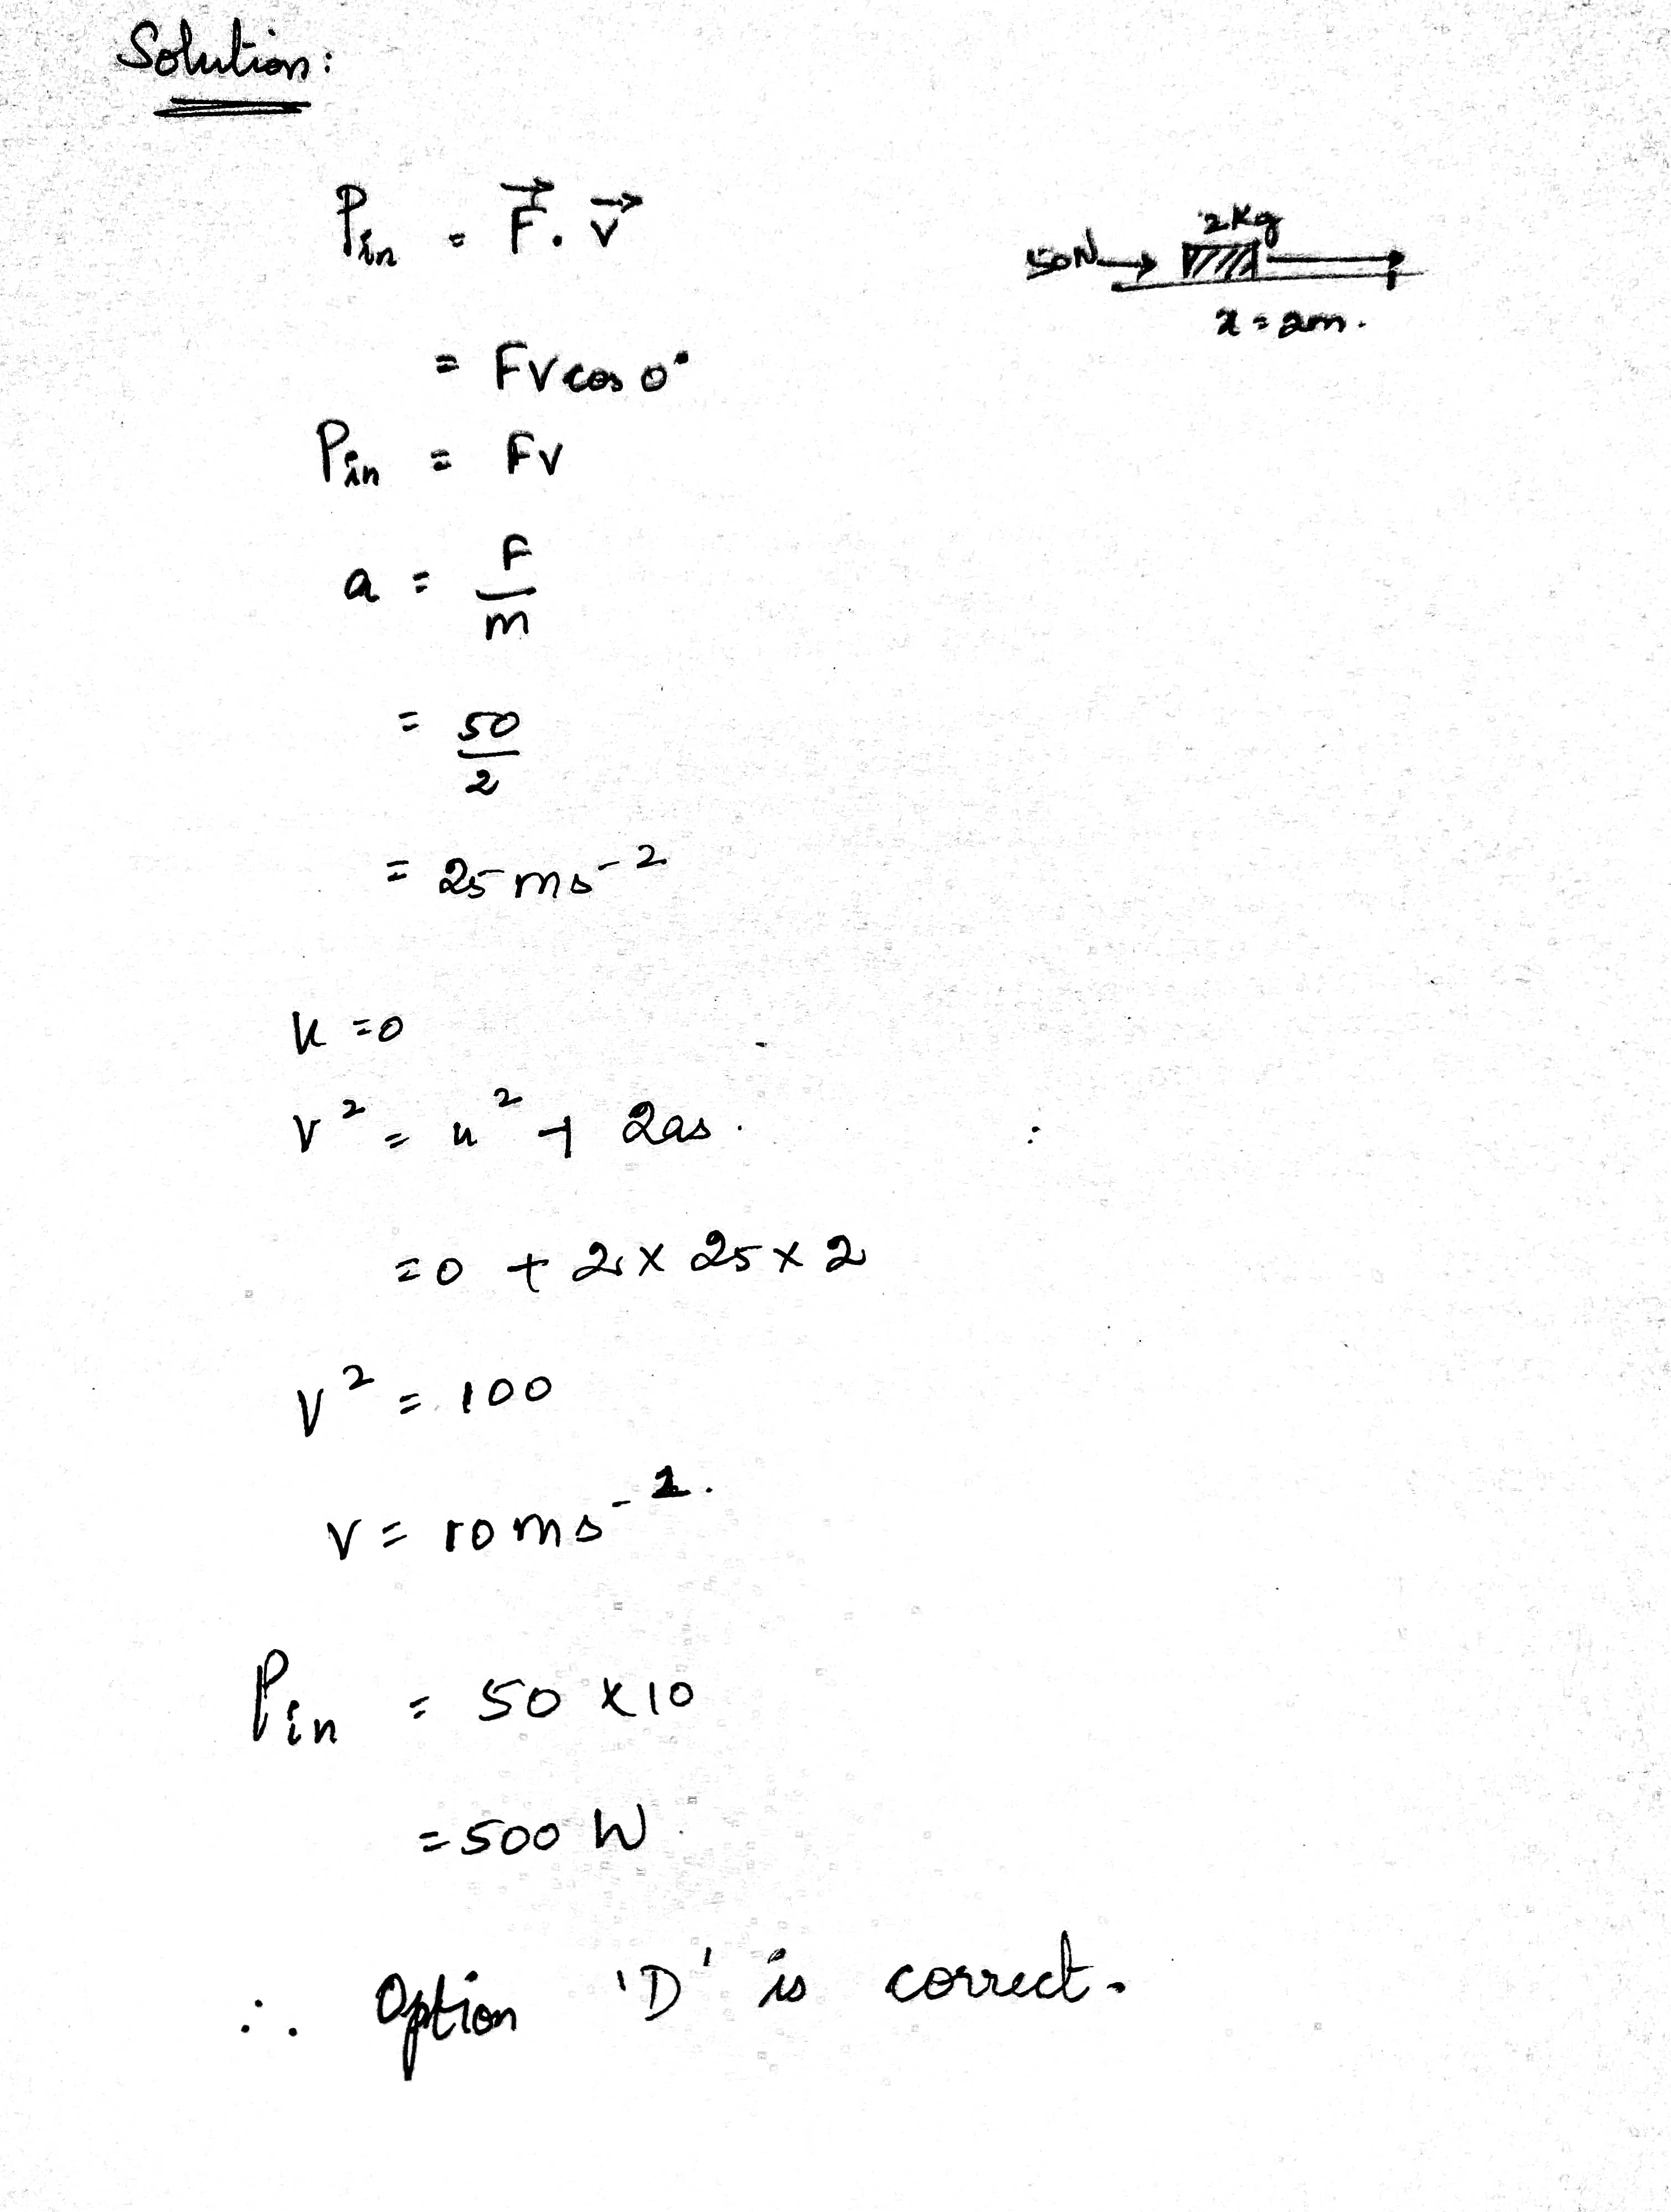 Solution:
P_in = F⃗. v⃗
50N → 2Kg
x = 2m.
= Fvcos 0°
P_in = Fv
a = F/m
= 50/2
= 25 ms⁻²
u = 0
v² = u² + 2as.
= 0 + 2 × 25 × 2
v² = 100
v = 10 ms⁻¹.
P_in = 50 × 10
= 500 W
∴ Option 'D' is correct.